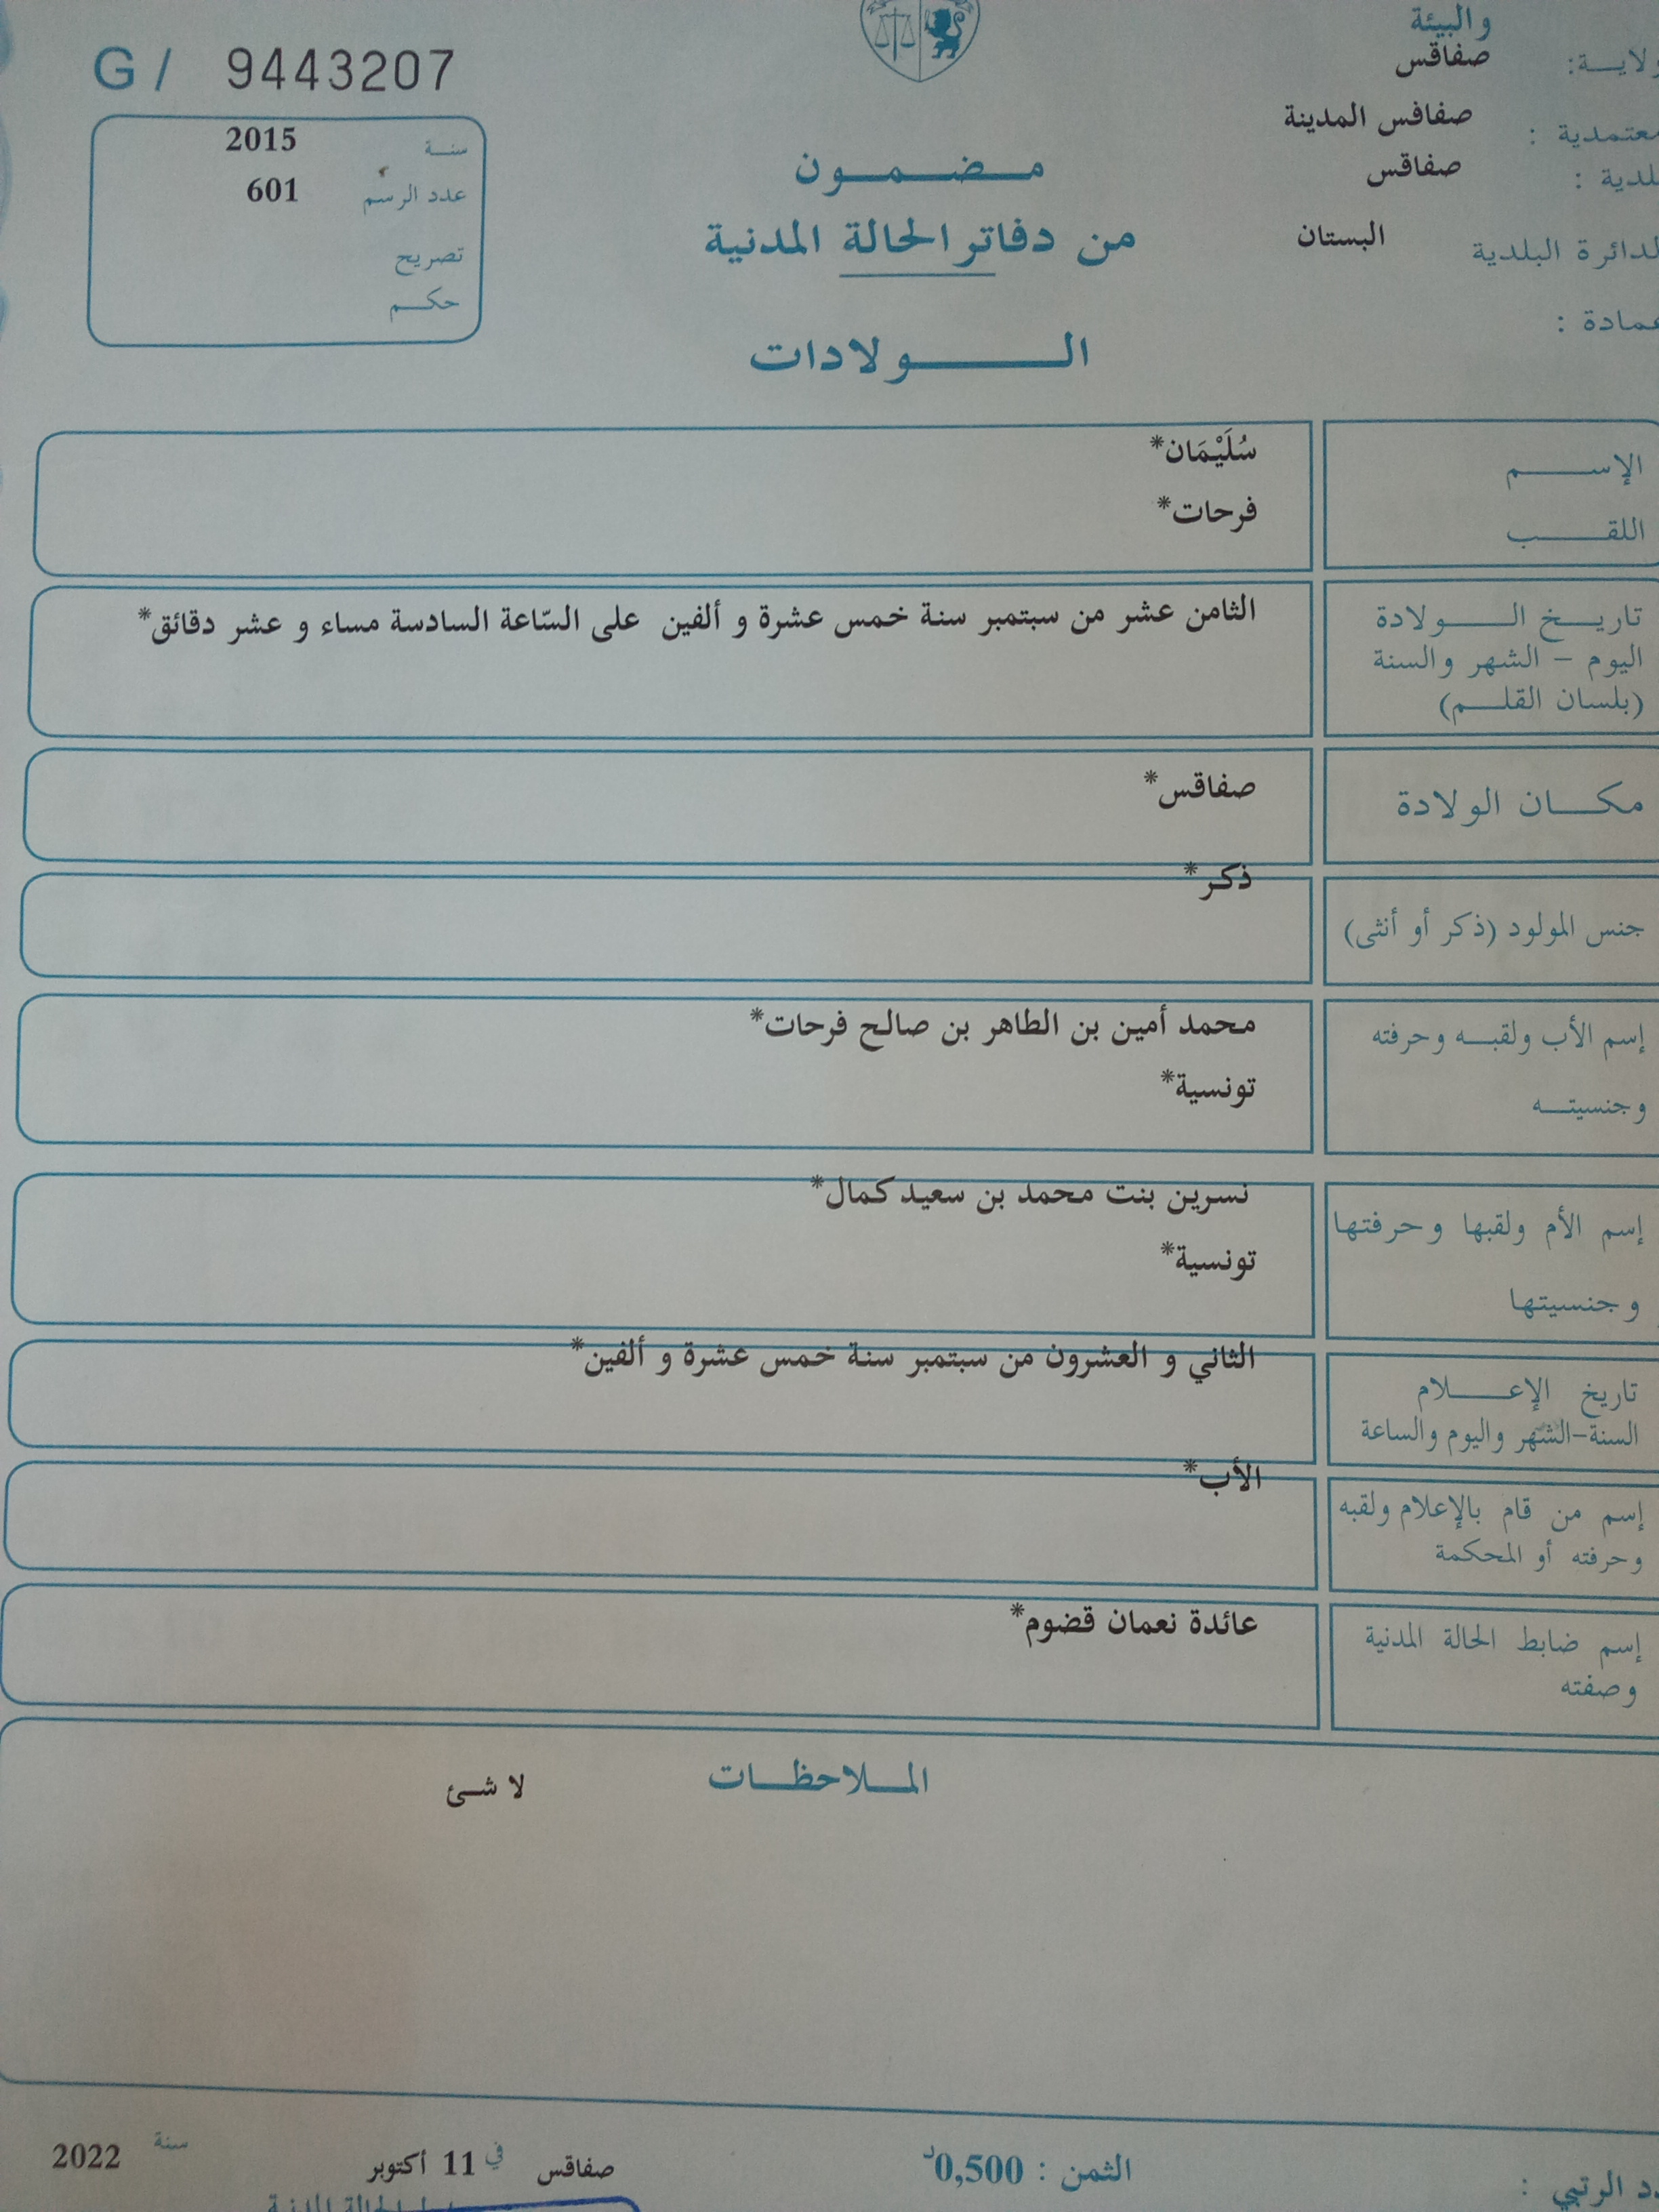 والبيئة
ولايــة: صفاقس
معتمدية : صفافس المدينة
بلدية : صفاقس
الدائرة البلدية البستان
عمادة :
G / 9443207
سنـة 2015
عدد الرسم 601
تصريح
حكــم
مـضـمـون
من دفاتر الحالة المدنية
الـولادات
الإســم سُلَيْمَان*
اللقــب فرحات*
تاريـخ الـولادة الثامن عشر من سبتمبر سنة خمس عشرة و ألفين على السّاعة السادسة مساء و عشر دقائق*
اليوم – الشهر والسنة
(بلسان القلـم)
مكــان الولادة صفاقس*
جنس المولود (ذكر أو أنثى) ذكر*
إسم الأب ولقبـه وحرفته محمد أمين بن الطاهر بن صالح فرحات*
وجنسيتـه تونسية*
إسم الأم ولقبها وحرفتها نسرين بنت محمد بن سعيد كمال*
وجنسيتها تونسية*
تاريخ الإعــلام الثاني و العشرون من سبتمبر سنة خمس عشرة و ألفين*
السنة-الشهر واليوم والساعة
إسم من قام بالإعلام ولقبه الأب*
وحرفته أو المحكمة
إسم ضابط الحالة المدنية عائدة نعمان قضوم*
وصفته
المـلاحظـات لا شئ
الرتبي :
الثمن : 0,500د
صفاقس في 11 أكتوبر سنة 2022
الحالة المدنية